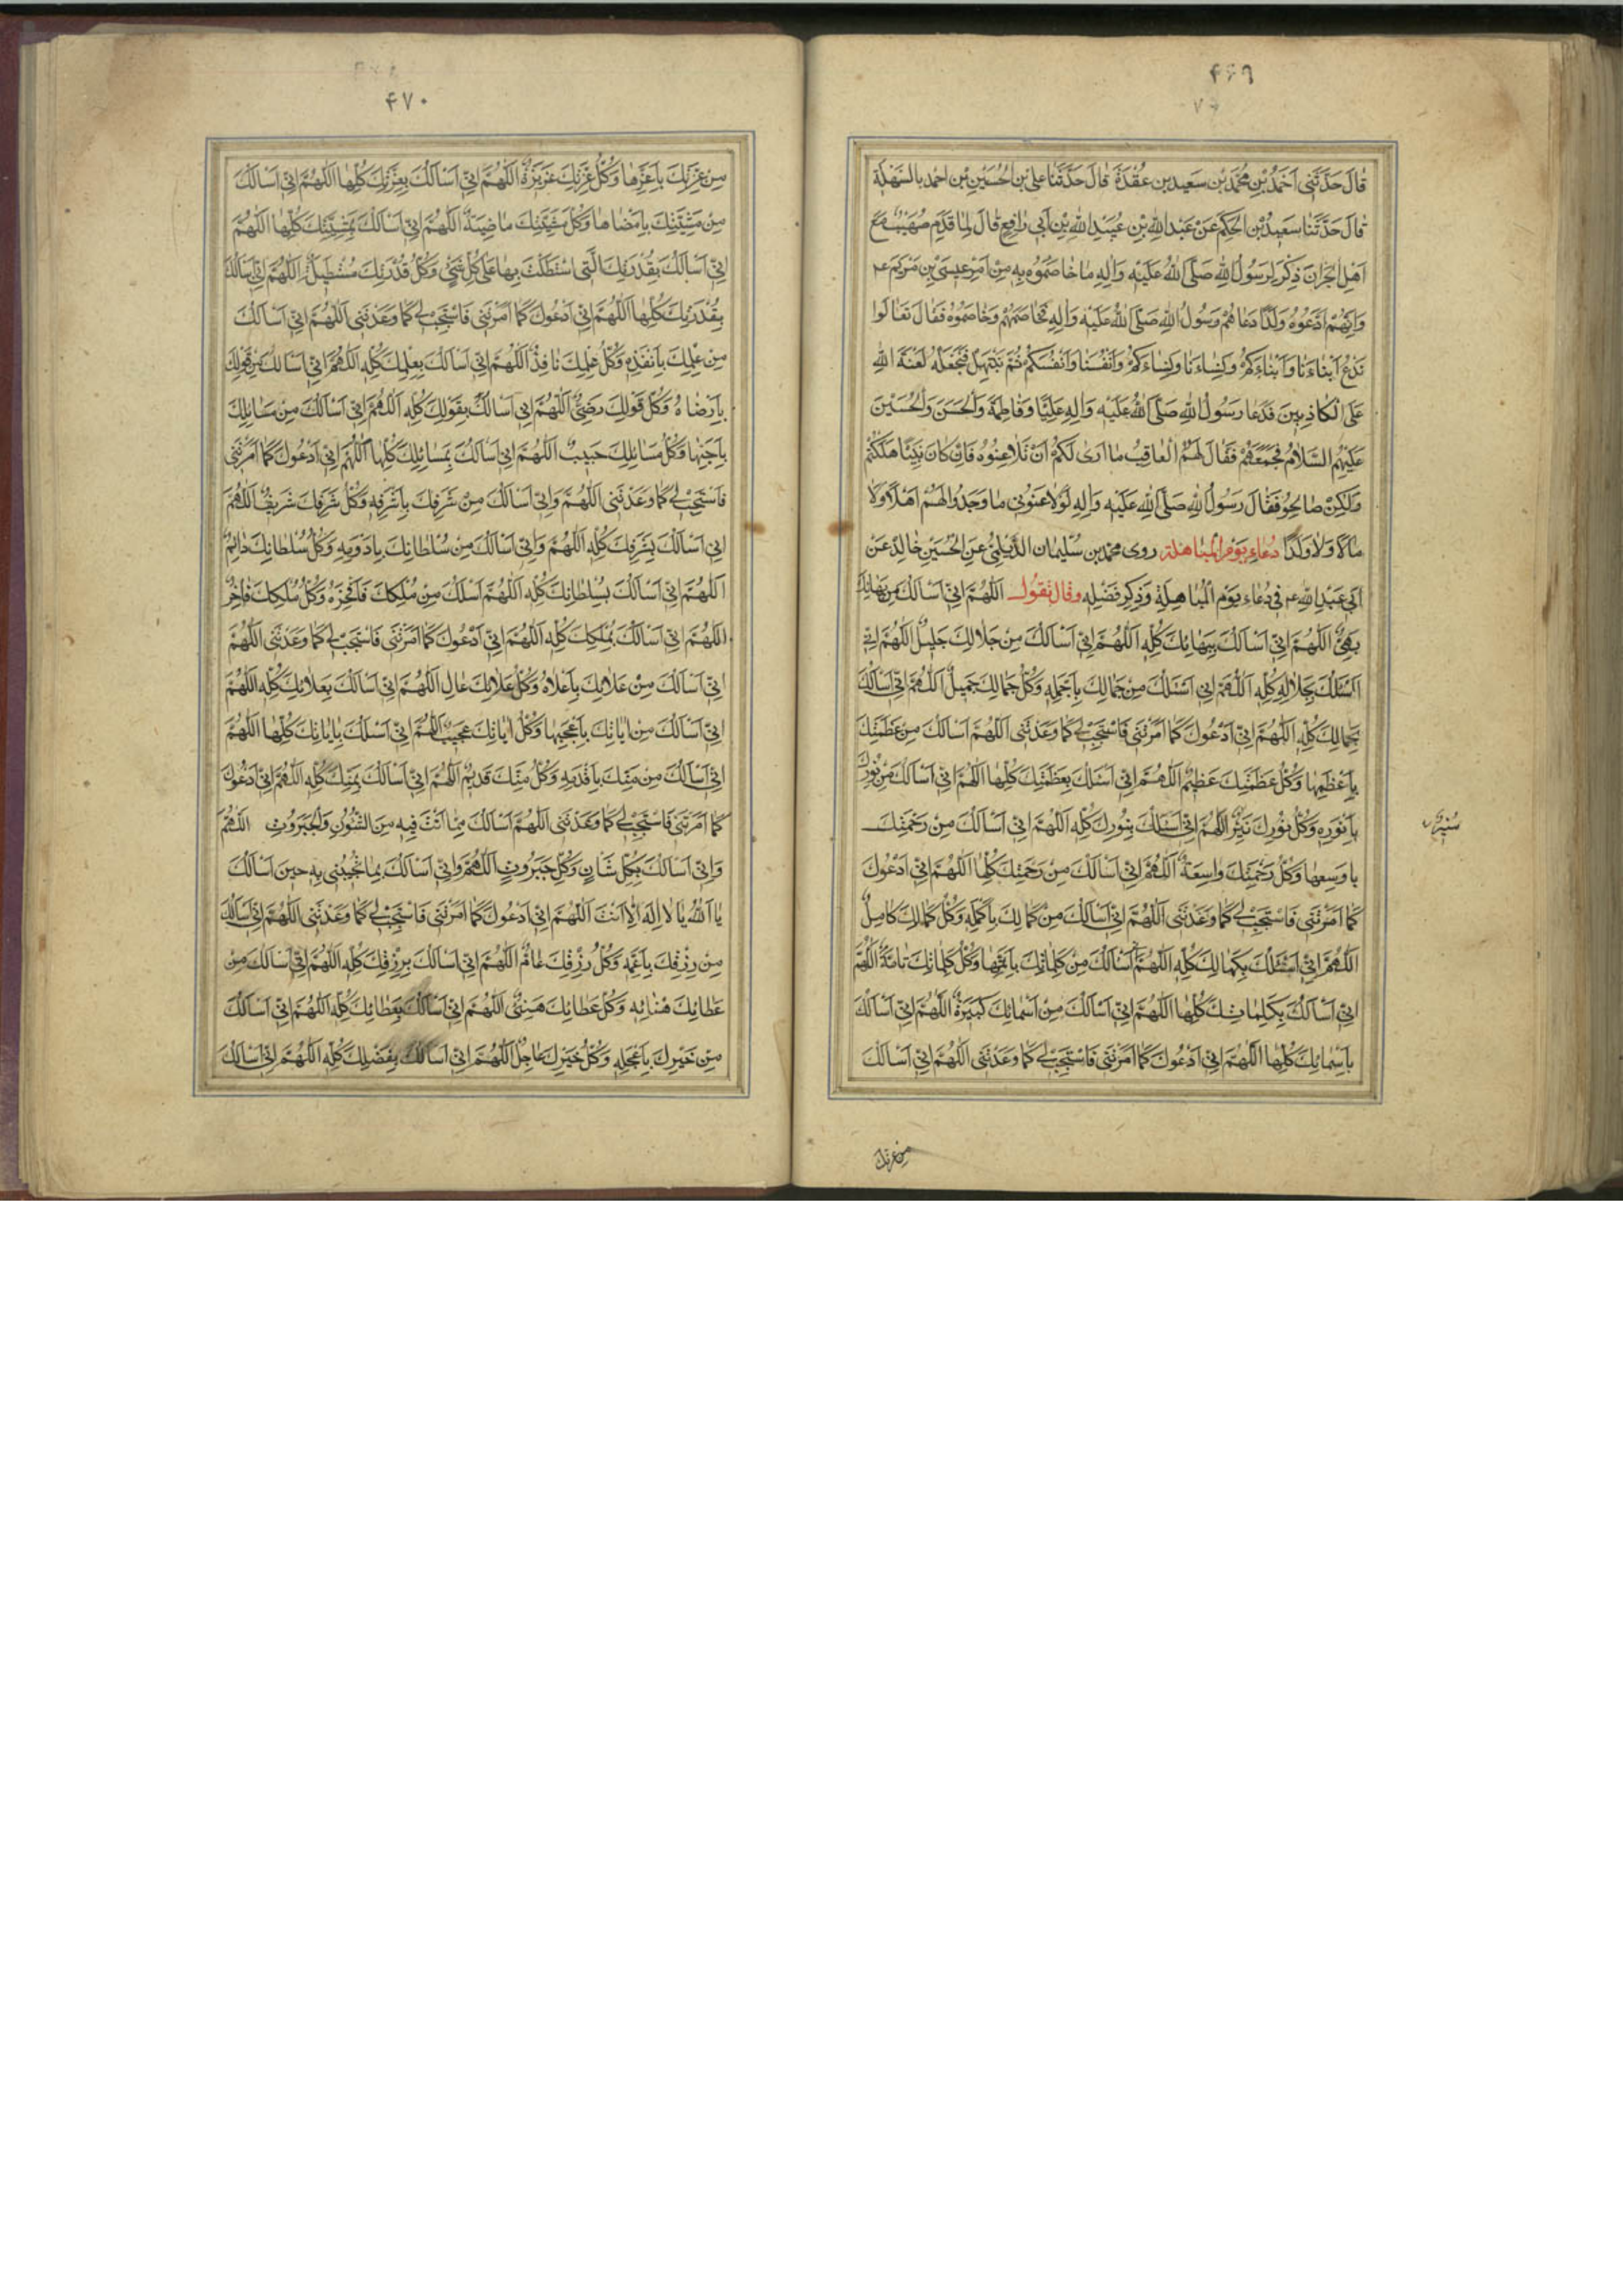 ۴۶۹
قٰالَ حَدَّثَنٰی اَحْمَدُ بْنِ مُحَمَّدِ بْنِ سَعيد بن عُقْدَةَ قٰالَ حَدَّثَنٰا علی بْنِ الْحُسَيْنِ بْنِ احمد بالسَّهْلَةِ
قٰالَ حَدَّثَنٰا سَعيدُ بْنِ الْحِكَمِ عَنْ عَبْدِ اللهِ بْنِ عُبَيْدِ اللهِ بْنِ اَبی رٰافِعٍ قٰالَ لَمٰا قَدِمَ صُهَيْبٌ مَعَ
اَهْلِ نَجْرٰانَ ذِكْرَ لِرَسُولُ اللهِ صَلَّی اللهُ عَلَيْهِ وَاٰلِهِ مٰا خٰاصَمُوهُ بِهِ مِنْ اَمْرِ عيسَی بْنِ مَرْيَمَ ع
وَاِنَّهُمْ ادَّعَوْهُ وَلَدًا دَعٰاهُمْ رَسُولُ اللهِ صَلَّی اللهُ عَلَيْهِ وَاٰلِهِ فَخٰاصَمَهُمْ وَخٰاصَمُوهُ فَقٰالَ تَعٰالَوا
نَدْعُ اَبْنٰاءَنٰا وَاَبْنٰاءَكُمْ وَنِسٰاءَنٰا وَنِسٰاءَكُمْ وَاَنْفُسَنٰا وَاَنْفُسَكُمْ ثُمَّ نَبْتَهِلْ فَنَجْعَلْ لَعْنَةَ اللهِ
عَلَی الْكٰاذِبينَ فَدَعٰا رَسُولُ اللهِ صَلَّی اللهُ عَلَيْهِ وَاٰلِهِ عَلِيًّا وَفٰاطِمَةَ وَالْحَسَنَ وَالْحُسَيْنَ
عَلَيْهِمُ السَّلاٰمُ فَجَمَعَهُمْ فَقٰالَ لَهُمُ الْعٰاقِبُ مٰا اَرٰی لَكُمْ اَنْ تُلاٰعِنُوهُ فَاِنْ كٰانَ نَبِيًّا هَلَكْتُمْ
وَلٰكِنْ صٰالِحُو فَقٰالَ رَسُولُ اللهِ صَلَّی اللهِ عَلَيْهِ وَاٰلِهِ لَوْ لاٰعَنُونی مٰا وَجَدُوا لَهُمْ اَهْلاً وَلاٰ
مٰالاً وَلاٰ وَلَدًا دُعٰاءِ يَوْمِ الْمُبٰاهَلَة روی محمّد بن سُلَيمان الدَّيْلَمِيُّ عَنِ الْحُسَيْنِ خٰالِدٍ عَنْ
اَبی عَبْدِ اللهِ ع فی دُعٰاءِ يَوْمِ الْمُبٰاهِلَةِ وَذِكِرِ فَضْلِهِ وقال تَقُولُ اَللّٰهُمَّ اِنّی اَسْاَلُكَ مِنْ بَهٰائِكَ
بَهِیٌّ اَللّٰهُمَّ اِنّی اَسْاَلُكَ بِبَهٰائِكَ كُلِّهِ اَللّٰهُمَّ اِنّی اَسْاَلُكَ مِنْ جَلاٰلِكَ جَليلٌ اَللّٰهُمَّ اِنّی
اَسْئَلُكَ بِجَلاٰلِهِ كُلِّهِ اَللّٰهُمَّ اِنّی اَسْئَلُكَ مِنْ جَمٰالِكَ بِاَجْمَلِهِ وَكُلُّ جَمٰالِكَ جَميلٌ اَللّٰهُمَّ اِنّی اَسْاَلُكَ
بِجَمٰالِكَ كُلِّهِ اَللّٰهُمَّ اِنّی اَدْعُوكَ كَمٰا اَمَرْتَنی فَاسْتَجِبْ لی كَمٰا وَعَدْتَنی اَللّٰهُمَّ اَسْاَلُكَ مِنْ عَظَمَتِكَ
بِاَعْظَمِهٰا وَكُلُّ عَظَمَتِكَ عَظيمٌ اَللّٰهُمَّ اِنّی اَسْئَلُكَ بِعَظَمَتِكَ كُلِّهٰا اَللّٰهُمَّ اِنّی اَسْاَلُكَ مِنْ نُورِكَ
بِاَنْوَرِهِ وَكُلُّ نُورِكَ نَيِّرٌ اَللّٰهُمَّ اِنّی اَسْاَلُكَ بِنُورِكَ كُلِّهِ اَللّٰهُمَّ اِنّی اَسْاَلُكَ مِنْ رَحْمَتِكَ
بِاَوْسِعِهٰا وَكُلُّ رَحْمَتِكَ وٰاسِعَةٌ اَللّٰهُمَّ اِنّی اَسْاَلُكَ مِنْ رَحْمَتِكَ كُلِّهٰا اَللّٰهُمَّ اِنّی اَدْعُوكَ
كَمٰا اَمَرْتَنی فَاسْتَجِبْ لی كَمٰا وَعَدْتَنی اَللّٰهُمَّ اِنّی اَسْاَلُكَ مِنْ كَمٰالِكَ بِاَكْمَلِهِ وَكُلُّ كَمٰالِكَ كٰامِلٌ
اَللّٰهُمَّ اِنّی اَسْئَلُكَ بِكَمٰالِكَ كُلِّهِ اَللّٰهُمَّ اَسْاَلُكَ مِنْ كَلِمٰاتِكَ بِاَتَمِّهٰا وَكُلُّ كَلِمٰاتِكَ تٰامَّةٌ اَللّٰهُمَّ
اِنّی اَسْاَلُكَ بِكَلِمٰاتِكَ كُلِّهٰا اَللّٰهُمَّ اِنّی اَسْاَلُكَ مِنْ اَسْمٰائِكَ كَبيرَةٌ اَللّٰهُمَّ اِنّی اَسْاَلُكَ
بِاَسْمٰائِكَ كُلِّهٰا اَللّٰهُمَّ اِنّی اَدْعُوكَ كَمٰا اَمَرْتَنی فَاسْتَجِبْ لی كَمٰا وَعَدْتَنی اَللّٰهُمَّ اِنّی اَسْاَلُكَ
من عزتك
۴۷۰
مِنْ عِزَّتِكَ بِاَعَزِّهٰا وَكُلُّ عِزَّتِكَ عَزيزَةٌ اَللّٰهُمَّ اِنّی اَسْاَلُكَ بِعِزَّتِكَ كُلِّهٰا اَللّٰهُمَّ اِنّی اَسْاَلُكَ
مِنْ مَشِيَّتِكَ بِاَمْضٰاهٰا وَكُلُّ مَشِيَّتِكَ مٰاضِيَةٌ اَللّٰهُمَّ اِنّی اَسْاَلُكَ بِمَشِيَّتِكَ كُلِّهٰا اَللّٰهُمَّ
اِنّی اَسْاَلُكَ بِقُدْرَتِكَ الَّتی اسْتَطَلْتَ بِهٰا عَلٰی كُلِّ شَیْءٍ وَكُلُّ قُدْرَتِكَ مُسْتَطيلَةٌ اَللّٰهُمَّ اِنّی اَسْاَلُكَ
بِقُدْرَتِكَ كُلِّهٰا اَللّٰهُمَّ اِنّی اَدْعُوكَ كَمٰا اَمَرْتَنی فَاسْتَجِبْ لی كَمٰا وَعَدْتَنی اَللّٰهُمَّ اِنّی اَسْاَلُكَ
مِنْ عِلْمِكَ بِاَنْفَذِهِ وَكُلُّ عِلْمِكَ نٰافِذٌ اَللّٰهُمَّ اِنّی اَسْاَلُكَ بِعِلْمِكَ كُلِّهِ اَللّٰهُمَّ اِنّی اَسْاَلُكَ مِنْ قَوْلِكَ
بِاَرْضٰاهُ وَكُلُّ قَوْلِكَ رَضِیٌّ اَللّٰهُمَّ اِنّی اَسْاَلُكَ بِقَوْلِكَ كُلِّهِ اَللّٰهُمَّ اِنّی اَسْاَلُكَ مِنْ مَسٰائِلِكَ
بِاَحَبِّهٰا وَكُلُّ مَسٰائِلِكَ حَبيبٌ اَللّٰهُمَّ اِنّی اَسْاَلُكَ بِمَسٰائِلِكَ كُلِّهٰا اَللّٰهُمَّ اِنّی اَدْعُوكَ كَمٰا اَمَرْتَنی
فَاسْتَجِبْ لی كَمٰا وَعَدْتَنی اَللّٰهُمَّ وَاِنّی اَسْاَلُكَ مِنْ شَرَفِكَ بِاَشْرَفِهِ وَكُلُّ شَرَفِكَ شَريفٌ اَللّٰهُمَّ
اِنّی اَسْاَلُكَ بِشَرَفِكَ كُلِّهِ اَللّٰهُمَّ وَاِنّی اَسْاَلُكَ مِنْ سُلْطٰانِكَ بِاَدْوَمِهِ وَكُلُّ سُلْطٰانِكَ دٰائِمٌ
اَللّٰهُمَّ اِنّی اَسْاَلُكَ بِسُلْطٰانِكَ كُلِّهِ اَللّٰهُمَّ اَسْئَلُكَ مِنْ مُلْكِكَ فَاَفْخَرَهُ وَكُلُّ مُلْكِكَ فٰاخِرٌ
اَللّٰهُمَّ اِنّی اَسْاَلُكَ بِمُلْكِكَ كُلِّهِ اَللّٰهُمَّ اِنّی اَدْعُوكَ كَمٰا اَمَرْتَنی فَاسْتَجِبْ لی كَمٰا وَعَدْتَنی اَللّٰهُمَّ
اِنّی اَسْاَلُكَ مِنْ عَلاٰئِكَ بِاَعْلاٰهُ وَكُلُّ عَلاٰئِكَ عٰالٍ اَللّٰهُمَّ اِنّی اَسْاَلُكَ بِعَلاٰئِكَ كُلِّهِ اَللّٰهُمَّ
اِنّی اَسْاَلُكَ مِنْ اٰيٰاتِكَ بِاَعْجَبِهٰا وَكُلُّ اٰيٰاتِكَ عَجيبٌ اَللّٰهُمَّ اِنّی اَسْئَلُكَ بِاٰيٰاتِكَ كُلِّهٰا اَللّٰهُمَّ
اِنّی اَسْاَلُكَ مِنْ مَنِّكَ بِاَقْدَمِهِ وَكُلُّ مَنِّكَ قَديمٌ اَللّٰهُمَّ اِنّی اَسْاَلُكَ بِمَنِّكَ كُلِّهِ اَللّٰهُمَّ اِنّی اَدْعُوكَ
كَمٰا اَمَرْتَنی فَاسْتَجِبْ لی كَمٰا وَعَدْتَنی اَللّٰهُمَّ اَسْاَلُكَ مِمّٰا اَنْتَ فيهِ مِنَ الشُّئُونِ وَالْجَبَرُوتِ اَللّٰهُمَّ
وَاِنّی اَسْاَلُكَ بِكُلِّ شَاْنٍ وَكُلِّ جَبَرُوتٍ اَللّٰهُمَّ وَاِنّی اَسْاَلُكَ بِمٰا تُجيبُنی بِهِ حينَ اَسْاَلُكَ
يٰا اَللهُ يٰا لاٰ اِلٰهَ اِلاّٰ اَنْتَ اَللّٰهُمَّ اِنّی اَدْعُوكَ كَمٰا اَمَرْتَنی فَاسْتَجِبْ لی كَمٰا وَعَدْتَنی اَللّٰهُمَّ اِنّی اَسْاَلُكَ
مِنْ رِزْقِكَ بِاَعَمِّهِ وَكُلُّ رِزْقِكَ عٰامٌّ اَللّٰهُمَّ اِنّی اَسْاَلُكَ بِرِزْقِكَ كُلِّهِ اَللّٰهُمَّ اِنّی اَسْاَلُكَ مِنْ
عَطٰائِكَ هْنٰائِهِ وَكُلُّ عَطٰائِكَ هَنِيئٌ اَللّٰهُمَّ اِنّی اَسْاَلُكَ بِعَطٰائِكَ كُلِّهِ اَللّٰهُمَّ اِنّی اَسْاَلُكَ
مِنْ خَيْرِكَ بِاَعْجَلِهِ وَكُلُّ خَيْرِكَ عٰاجِلٌ اَللّٰهُمَّ اِنّی اَسْاَلُكَ بِفَضْلِكَ كُلِّهِ اَللّٰهُمَّ اِنّی اَسْاَلُكَ